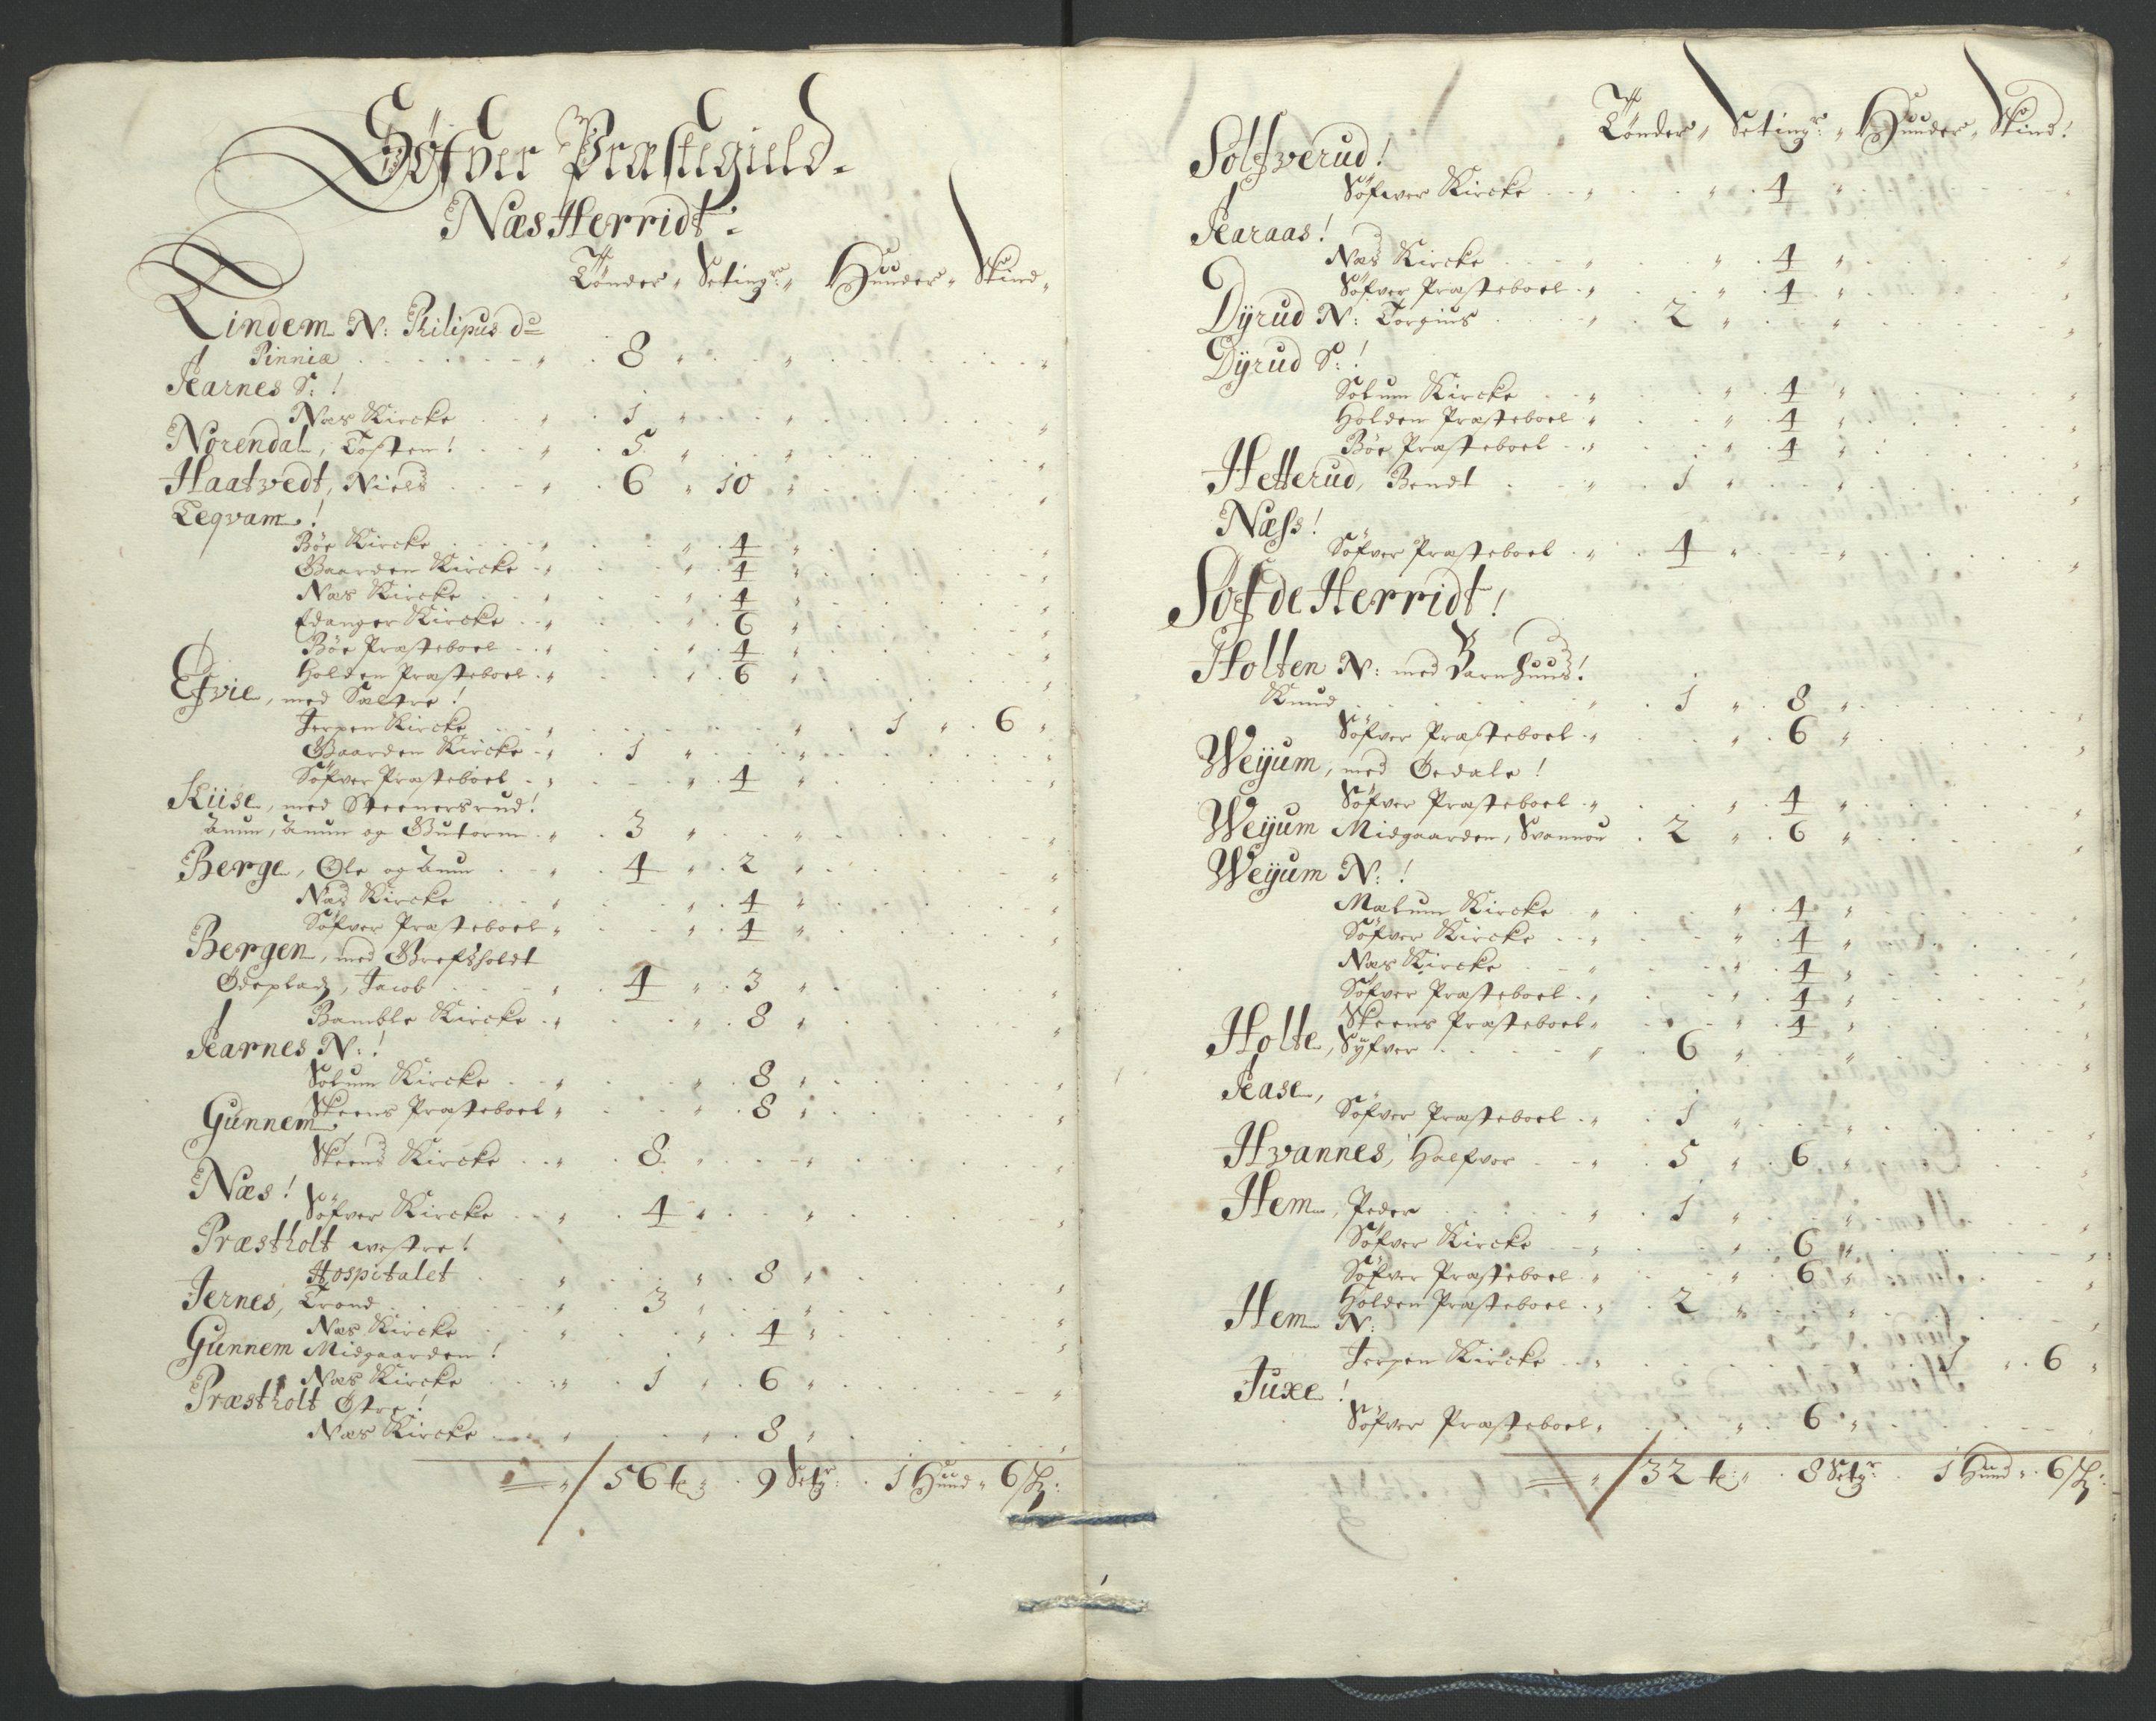 Søfver Præstegield.
Næs Herridt:
Tønder „ Setingr: „ Huuder „ Skind „
Lindem N: Philipus do
Pinniæ „ 8 „ „ „
Aarnes S: !
Næs Kircke „ 1 „ „ „
Norendal, Tosten! „ 5 „ „ „
Haatvedt, Niels „ 6 „ 10 „ „
Teqvam!
Bøe Kircke „ „ 4 „ „
Gaarden Kircke „ „ 4 „ „
Næs Kircke „ „ 4 „ „
Edanger Kircke „ „ 6 „ „
Bøe Præsteboel „ „ 4 „ „
Holden Præsteboel „ „ 6 „ „
Efvie, med Sæltre!
Jerpen Kircke „ „ 1 „ 6 „
Gaarden Kircke „ 1 „ „ „
Søfver Præsteboel „ „ 4 „ „
Kiise, med Steenersrud!
Anun, Anun og Gutorm „ 3 „ „ „
Berge, Ole og Anun „ 4 „ 2 „ „
Næs Kircke „ „ 4 „ „
Søfver Præsteboel „ „ 4 „ „
Bergen, med Grefsholdt
Ødeplads, Jacob „ 4 „ 3 „ „
Bamble Kircke „ „ 8 „ „
Aarnes N: !
Solum Kircke „ „ 8 „ „
Skeens Præsteboel „ „ 8 „ „
Gunnem,
Skeens Kircke „ 8 „ „ „
Næs!
Søfver Kircke „ 4 „ „ „
Præstholt westre!
Hospitalet „ „ 8 „ „
Jernes, Trond „ 3 „ „ „
Næs Kircke „ „ 4 „ „
Gunnem Midgaarden!
Næs Kircke „ 1 „ 6 „ „
Præstholt Østre!
Næs Kircke „ „ 8 „ „
56 t: „ 9 Setgr: 1 Huud „ 6 sk:
Tønder „ Setingr: „ Huuder „ Skind!
Solfverud!
Søfver Kircke „ „ 4 „
Aaraas!
Næs Kircke „ „ 4 „ „
Søfver Præsteboel „ „ 4 „ „
Dyrud N: Torgius „ 2 „ „ „
Dyrud S: !
Solum Kircke „ „ 4 „ „
Holden Præsteboel „ „ 4 „ „
Bøe Præsteboel „ „ 4 „ „
Hetterud, Bendt „ 1 „ „ „
Næss!
Søfver Præsteboel „ 4 „ „ „
Søfde Herridt!
Holten N: med Barnhuus!
Knud „ 1 „ 8 „ „
Søfver Præsteboel „ „ 6 „ „
Weyum, med Øedale!
Søfver Præsteboel „ „ 4 „ „
Weyum Midgaarden, Svannou 2 „ 6 „ „
Weyum N: !
Mælum Kircke „ „ 4 „ „
Søfver Kircke „ „ 4 „ „
Næs Kircke „ „ 4 „ „
Søfver Præsteboel „ „ 4 „ „
Skeens Præsteboel „ „ 4 „ „
Holte, Syfver „ 6 „ „ „
Aase,
Søfver Præsteboel „ 1 „ „ „
Hvannes, Halfvor „ 5 „ 6 „ „
Hem, Peder „ 1 „ „ „
Søfver Kircke „ „ 6 „ „
Søfver Præsteboel „ „ 6 „ „
Holden Præsteboel „ 2 „ „ „
Hem N:
Jerpen Kircke „ 1 „ 6 „
Juxe!
Søfver Præsteboel „ „ 6 „
„ 32 t: „ 8 Setgr: 1 Huud „ 6 sk: